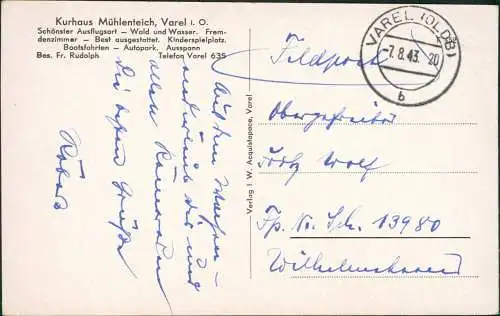 Kurhaus Mühlenteich, Varel i. O.
Schönster Ausflugsort – Wald und Wasser. Frem-
denzimmer – Best ausgestattet. Kinderspielplatz.
Bootsfahrten – Autopark. Ausspann
Bes. Fr. Rudolph Telefon Varel 635
VAREL (OLDB)
-7.8.43. 20
b
Feldpost
Auf dem
und
allen Kameraden
die besten Grüße
Verlag I. W. Acquistapace, Varel
Obergefreiter
Wolf
Fp. Nr. Sch. 13980
Wilhelmshaven